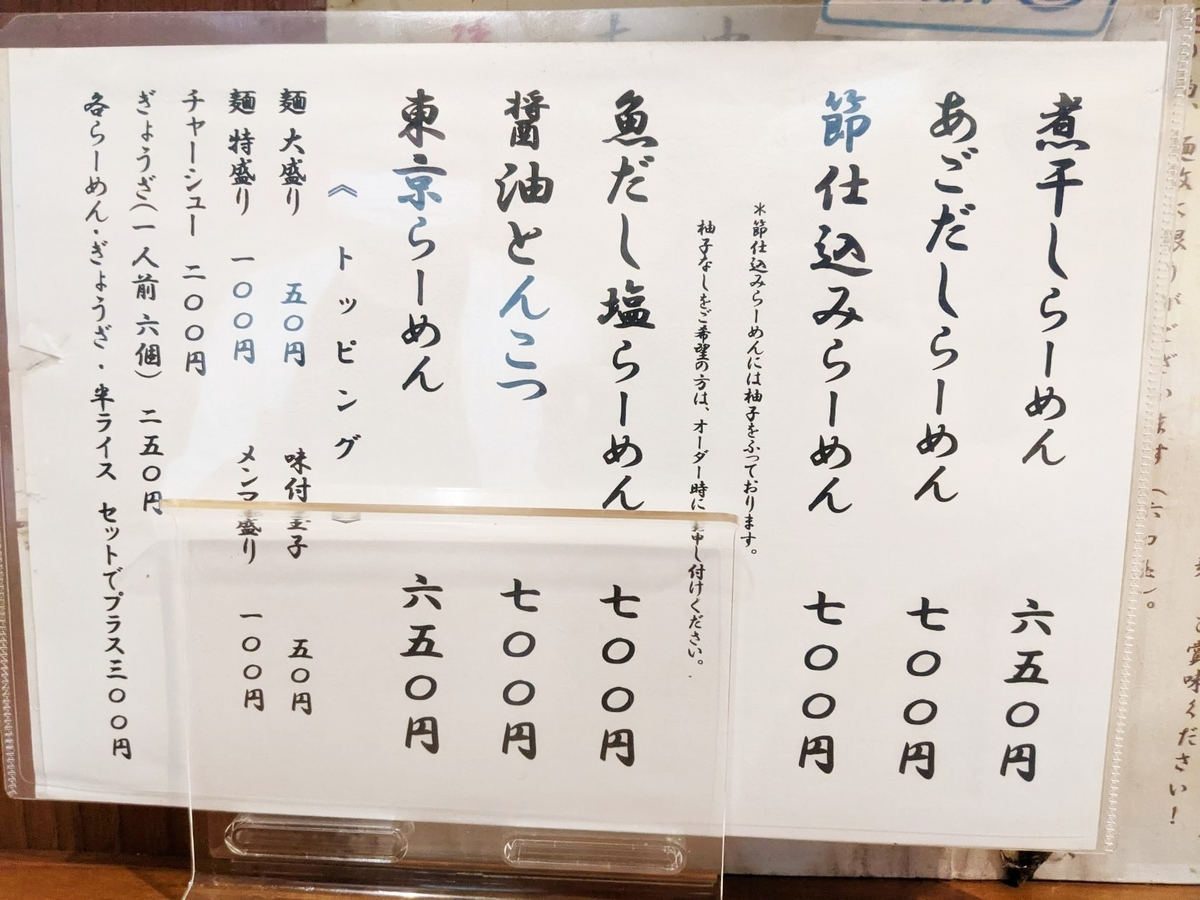 煮干しらーめん 六五〇円
あごだしらーめん 七〇〇円
節仕込みらーめん 七〇〇円
*節仕込みらーめんには柚子をふっております。
柚子なしをご希望の方は、オーダー時に申し付けください。
魚だし塩らーめん 七〇〇円
醤油とんこつ 七〇〇円
東京らーめん 六五〇円
《トッピング》
麺 大盛り 五〇円 味付玉子 五〇円
麺 特盛り 一〇〇円 メンマ盛り 一〇〇円
チャーシュー 二〇〇円
ぎょうざ(一人前 六個) 二五〇円
各らーめん・ぎょうざ・半ライス セットでプラス三〇〇円